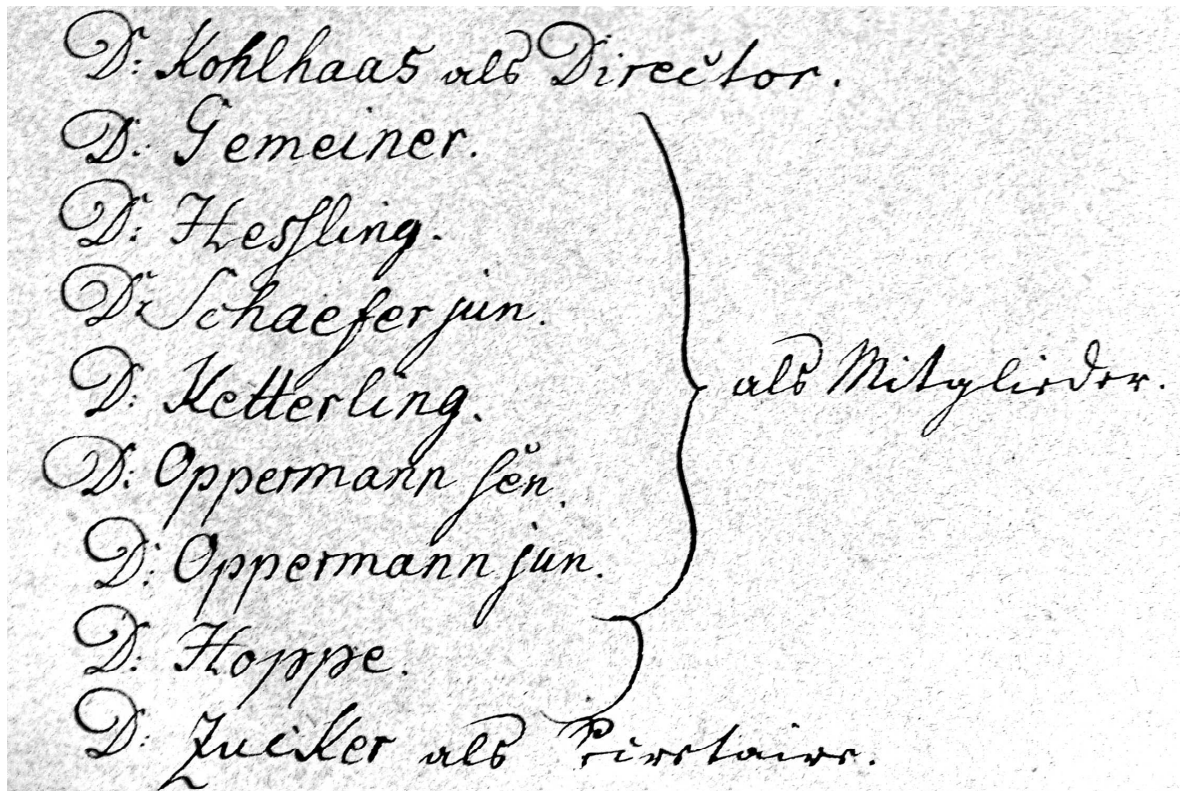 Dr: Kohlhaas als Director.
Dr: Gemeiner.
Dr: Hessling.
Dr: Schaefer jun.
D: Ketterling.
D: Oppermann sen.
D: Oppermann jun.
als Mitglieder.
D: Hoppe.
D: Zucker als